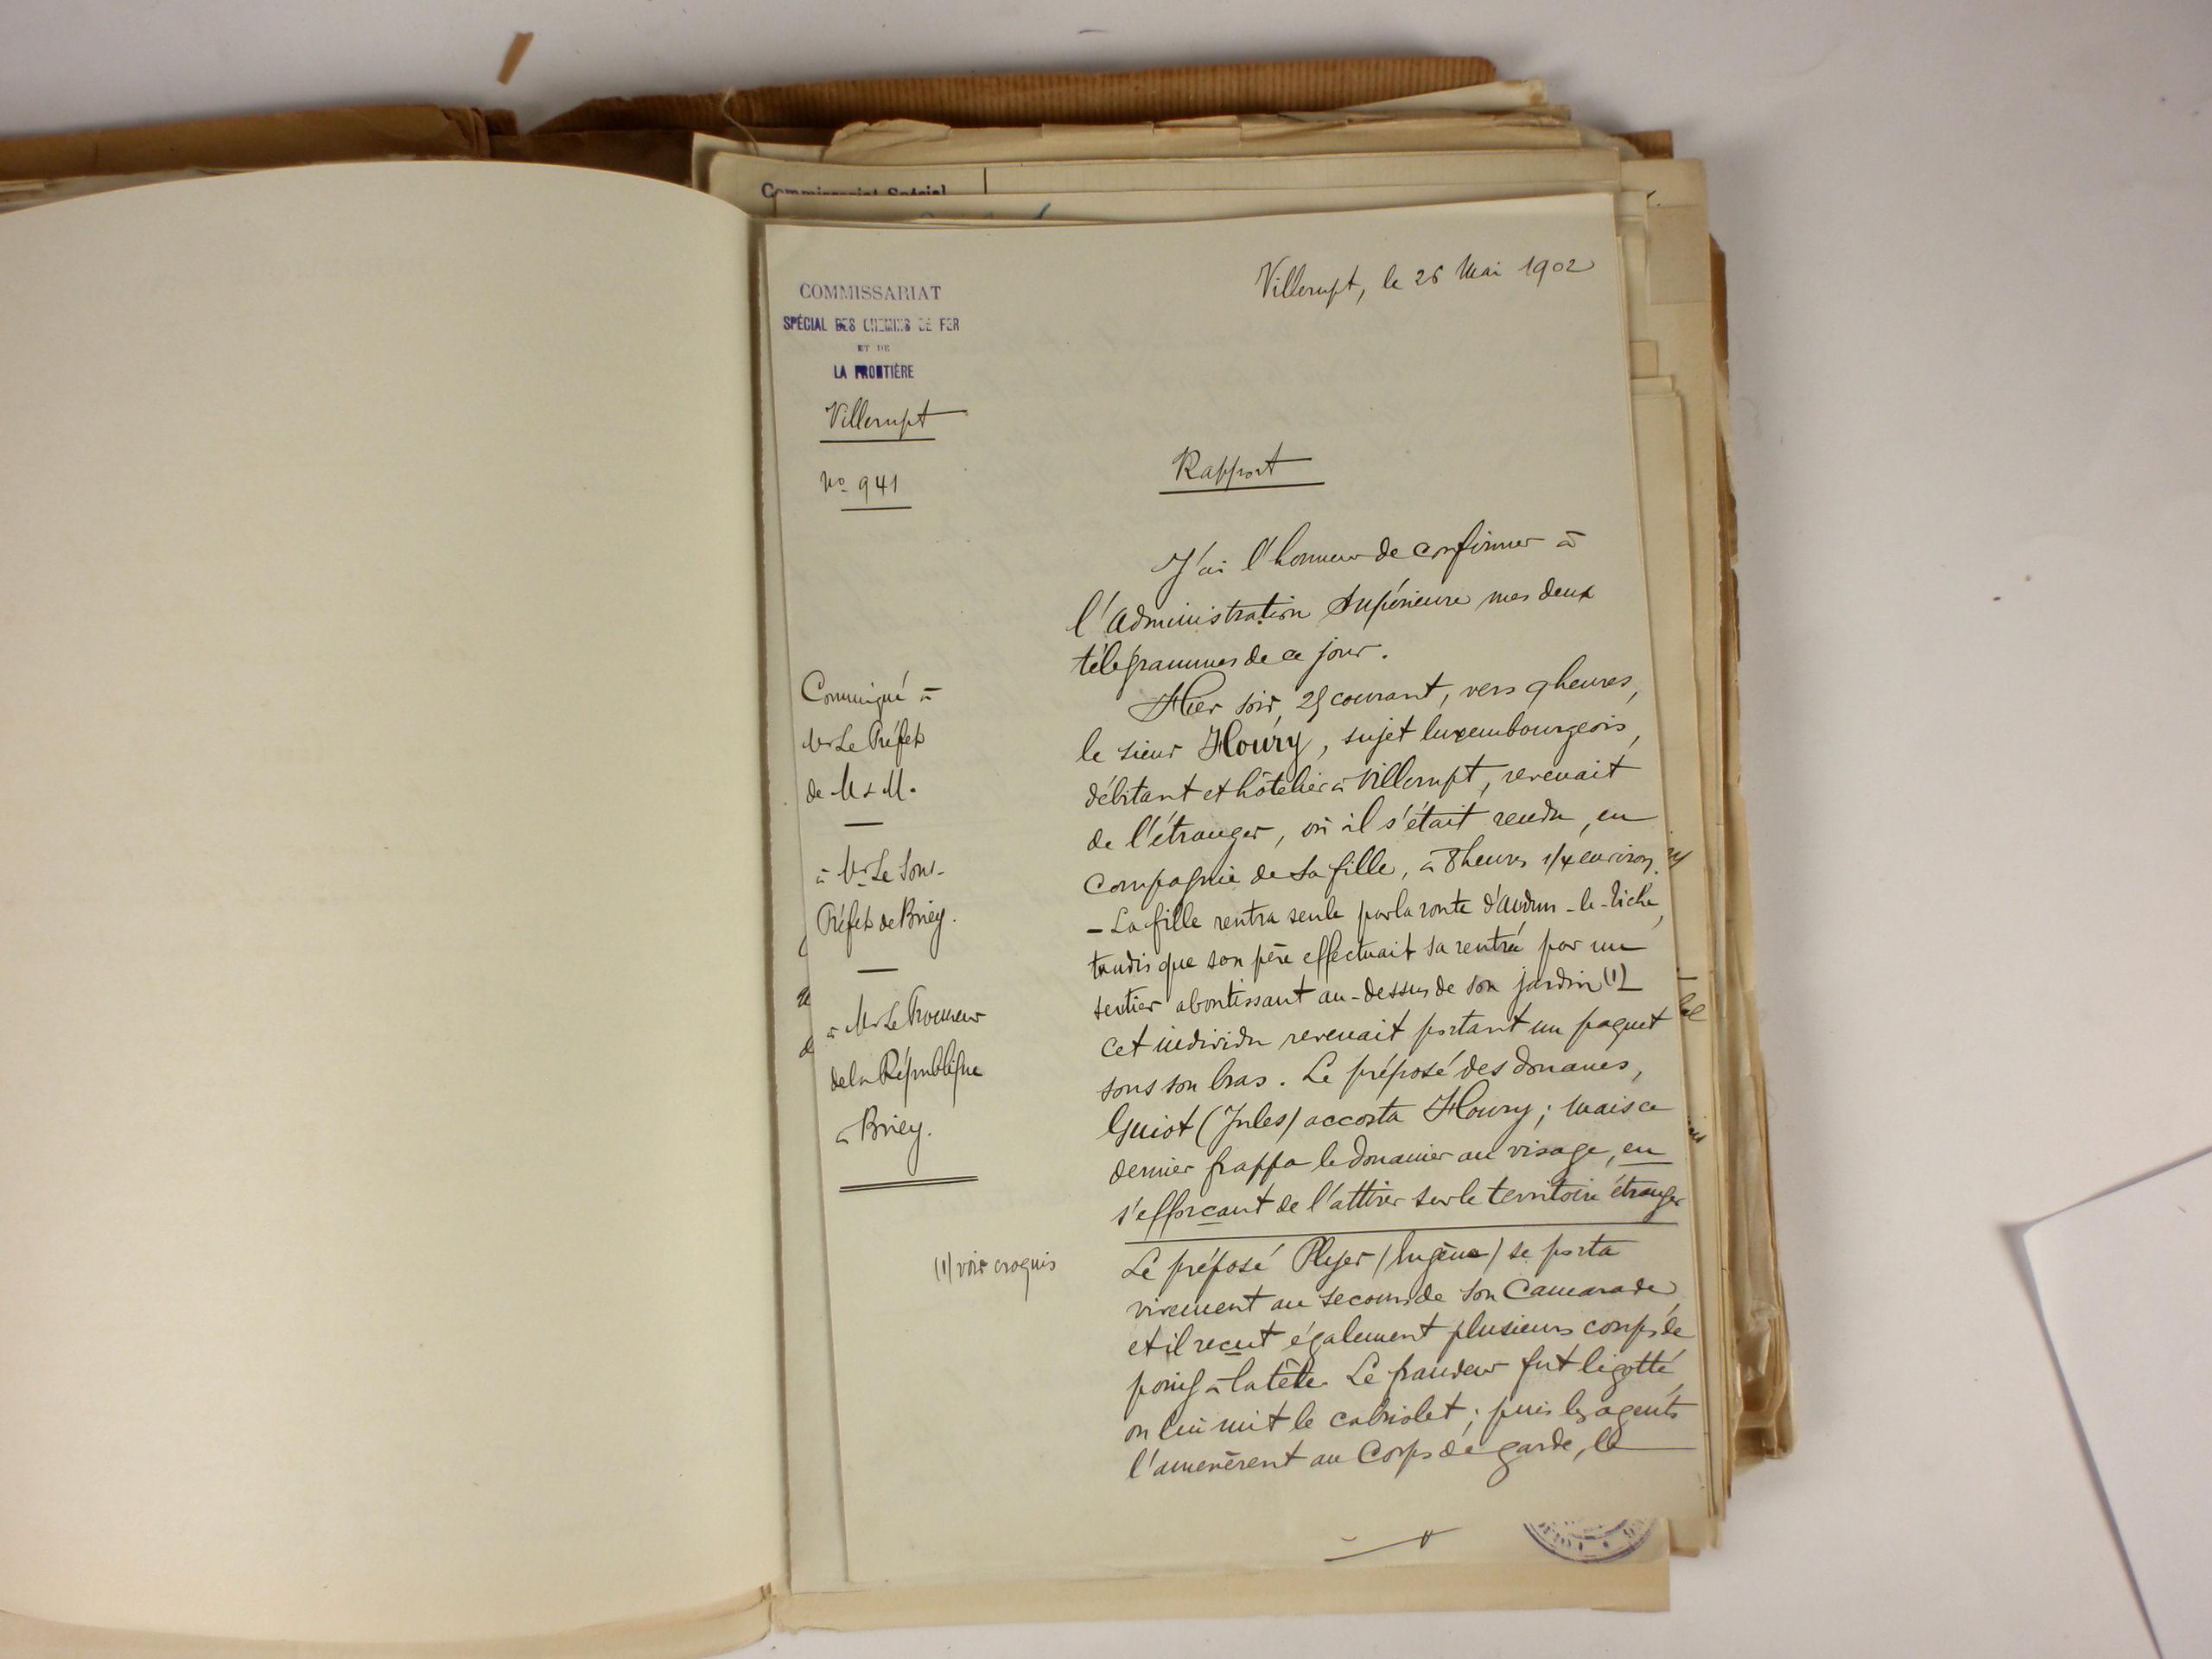 Commissariat Spécial
COMMISSARIAT
SPÉCIAL DES CHEMINS DE FER
ET DE
LA FRONTIÈRE
Villerupt
No 941
Villerupt, le 26 Mai 1902
Rapport
J'ai l'honneur de confirmer à
l'Administration Supérieure mes deux
télégrammes de ce jour.
Hier soir, 25 courant, vers 9 heures,
le sieur Houry, sujet luxembourgeois,
débitant et hôtelier à Villerupt, revenait
de l'étranger, où il s'était rendu, en
compagnie de sa fille, à 8 heures 1/4 environ.
- La fille rentra seule par la route d'Audun-le-Tiche,
tandis que son père effectuait sa rentrée par un
sentier aboutissant au-dessus de son jardin (1)
Cet individu revenait portant un paquet
sous son bras. Le préposé des douanes,
Guiot (Jules) accosta Houry; mais ce
dernier frappa le douanier au visage, en
s'efforçant de l'attirer sur le territoire étranger
Le préposé (Eugène) se porta
vivement au secours de son Camarade,
et il reçut également plusieurs coups de
poing à la tête. Le fraudeur fut ligotté,
on lui mit le cabriolet; puis les agents
l'amenèrent au Corps de garde, le
Communiqué à
Mr Le Préfet
de M & M.
à Mr Le Sous-
Préfet de Briey.
à Mr Le Procureur
de la République
à Briey.
(1) voir croquis